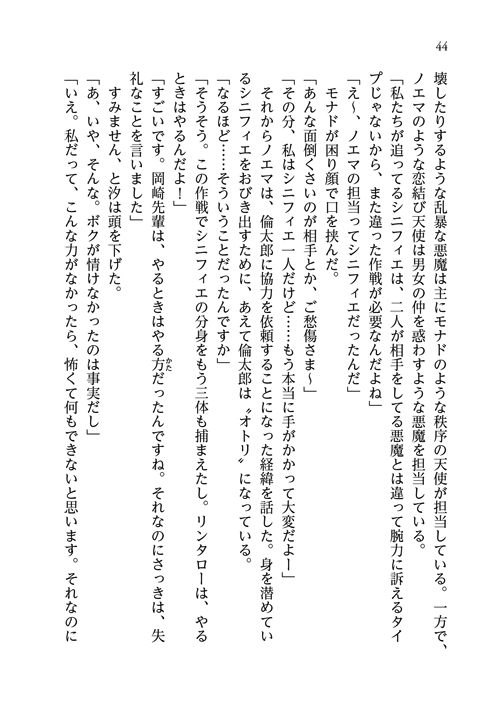 44
壊したりするような乱暴な悪魔は主にモナドのような秩序の天使が担当している。一方で、
ノエマのような恋結び天使は男女の仲を惑わすような悪魔を担当している。
「私たちが追ってるシニフィエは、二人が相手をしてる悪魔とは違って腕力に訴えるタイ
プじゃないから、また違った作戦が必要なんだよね」
「え～、ノエマの担当ってシニフィエだったんだ」
　モナドが困り顔で口を挟んだ。
「あんな面倒くさいのが相手とか、ご愁傷さま～」
「その分、私はシニフィエ一人だけど……もう本当に手がかかって大変だよー」
　それからノエマは、倫太郎に協力を依頼することになった経緯を話した。身を潜めてい
るシニフィエをおびき出すために、あえて倫太郎は〝オトリ〟になっている。
「なるほど……そういうことだったんですか」
「そうそう。この作戦でシニフィエの分身をもう三体も捕まえたし。リンタローは、やる
ときはやるんだよ！」
「すごいです。岡崎先輩は、やるときはやる方かただったんですね。それなのにさっきは、失
礼なことを言いました」
　すみません、と汐は頭を下げた。
「あ、いや、そんな。ボクが情けなかったのは事実だし」
「いえ。私だって、こんな力がなかったら、怖くて何もできないと思います。それなのに